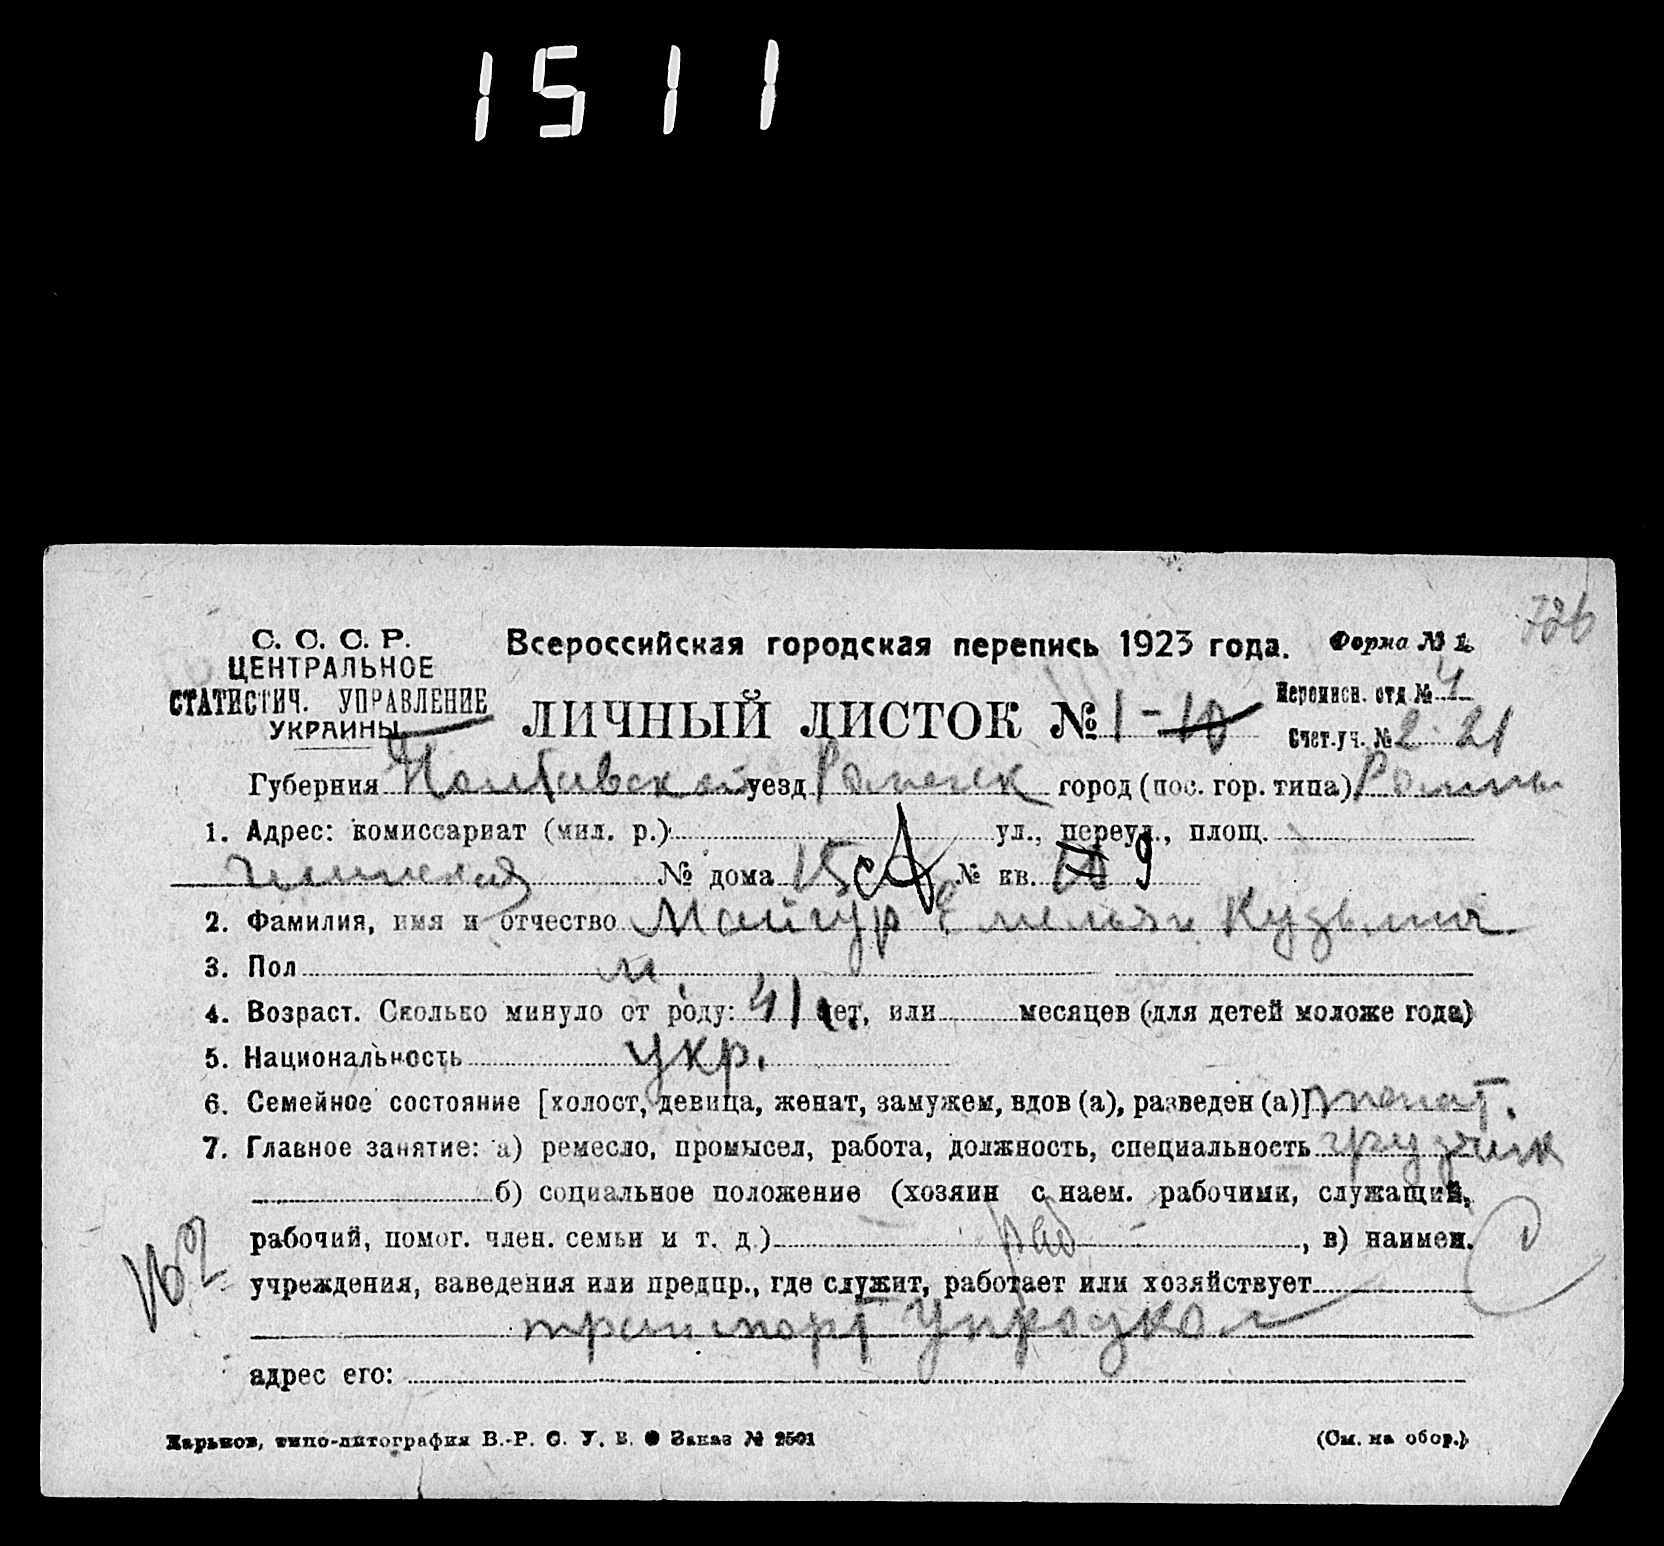 1511
726
С. С. С. Р.
ЦЕНТРАЛЬНОЕ
СТАТИСТИЧ. УПРАВЛЕНИЕ
УКРАИНЫ
Всероссийская городская перепись 1923 года.
Форма № 1.
ЛИЧНЫЙ ЛИСТОК № 1-10
Переписн. отд № 4
Счет. уч. № 2 21
Губерния Полтавской уезд Роменск город (пос. гор. типа) Ромны
1. Адрес: комиссариат (мил. р.) ул., переул., площ.
№ дома 15 № кв. 10 9
2. Фамилия, имя и отчество Майгур Емельян Кузьмич
3. Пол м.
4. Возраст. Сколько минуло от роду: 41 лет, или месяцев (для детей моложе года)
5. Национальность укр.
6. Семейное состояние [холост, девица, женат, замужем, вдов (а), разведен (а)] женат.
7. Главное занятие: а) ремесло, промысел, работа, должность, специальность грузчик
б) социальное положение (хозяин с наем. рабочими, служащий,
рабочий, помог. член. семьи и т. д.) раб , в) наимен.
162
учреждения, заведения или предпр., где служит, работает или хозяйствует
транспорт
адрес его:
Харьков, типо-литография В.-Р. С. У. В. Заказ № 2501
(См. на обор.)